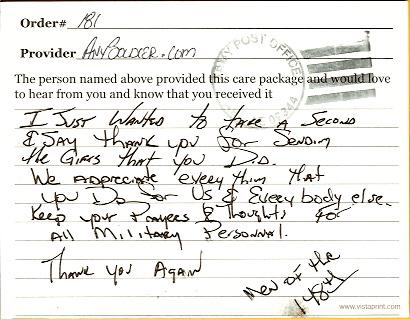 Order# 181
Provider AnySoldier.com
ARMY POST OFFICE
The person named above provided this care package and would love
to hear from you and know that you received it
I Just Wanted to take a Second
& Say thank you for Sendin
the Gifts that you Did.
We Appreciate every thim that
you Do for Us & Every body else.
Keep your Prayers & Thoughts for
All Military Personnal.
Thank you Again
Men of the
148th
www.vistaprint.com